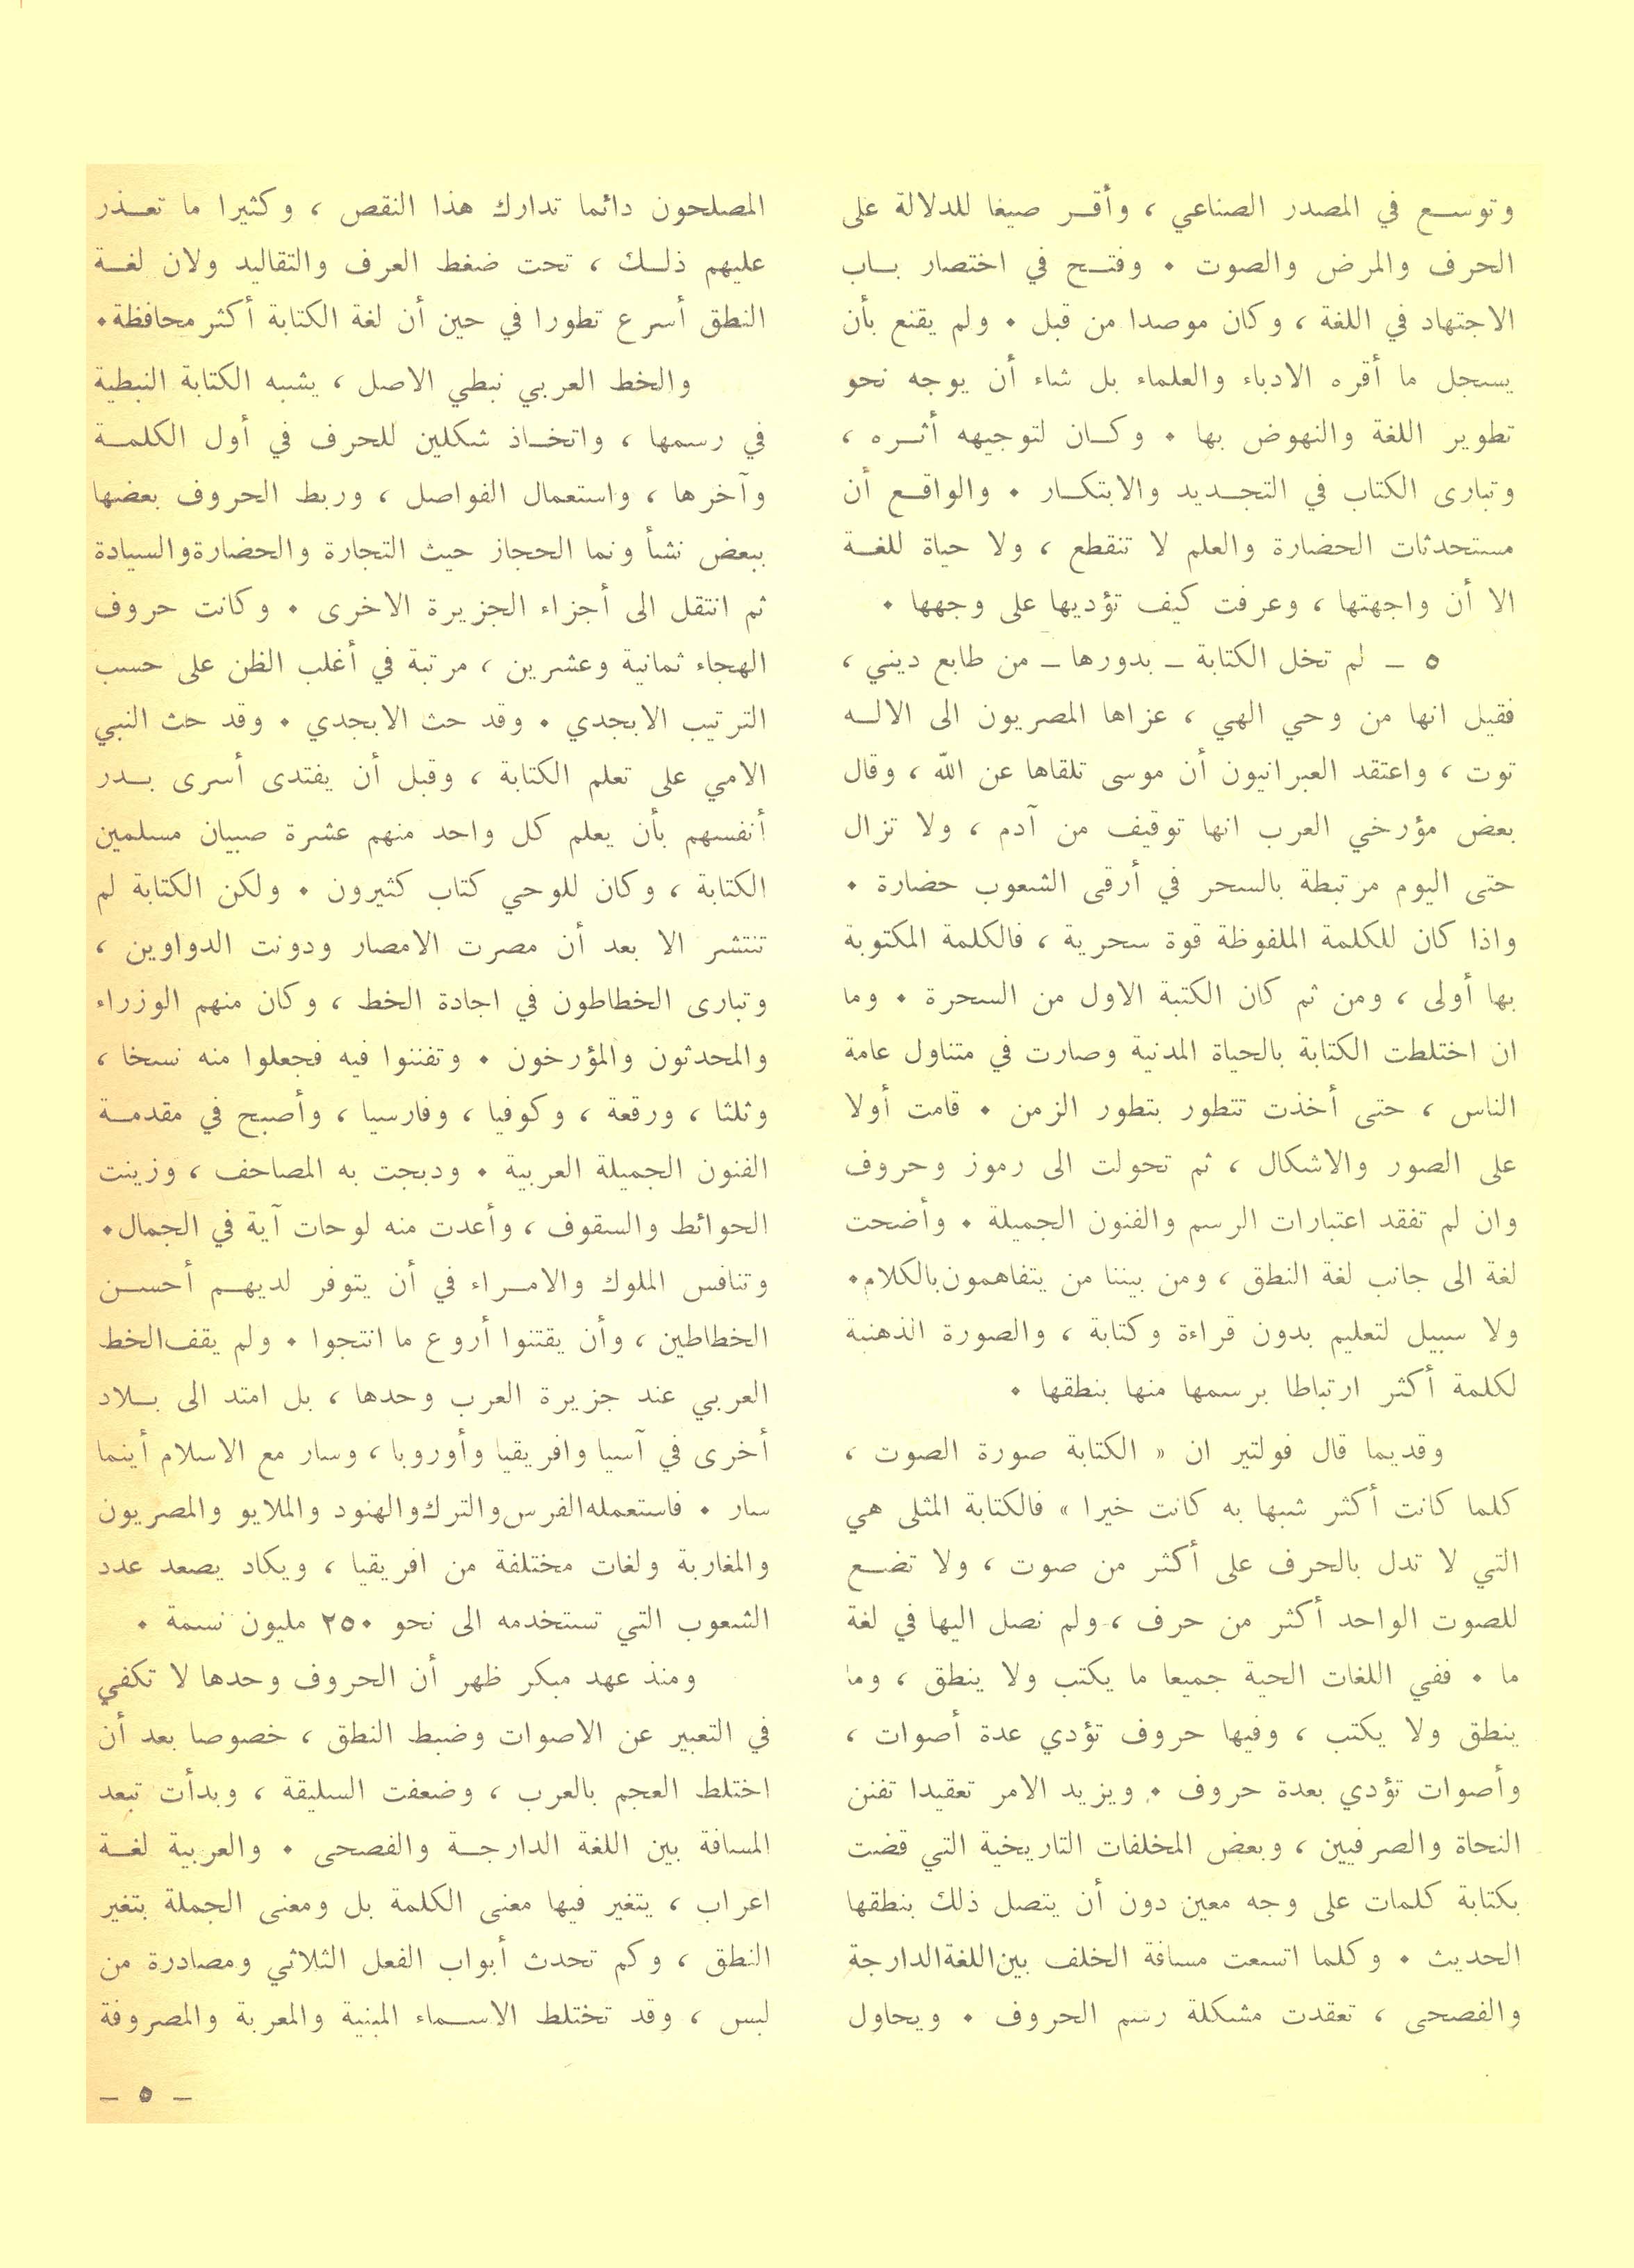 وتوسع في المصدر الصناعي ، وأقر صيغا للدلالة على
الحرف والمرض والصوت • وفتح في اختصار باب
الاجتهاد في اللغة ، وكان موصدا من قبل • ولم يقنع بأن
يسجل ما أقره الادباء والعلماء بل شاء أن يوجه نحو
تطوير اللغة والنهوض بها • وكان لتوجيهه أثره ،
وتبارى الكتاب في التجديد والابتكار • والواقع أن
مستحدثات الحضارة والعلم لا تنقطع ، ولا حياة للغة
الا أن واجهتها ، وعرفت كيف تؤديها على وجهها •
٥ – لم تخل الكتابة – بدورها – من طابع ديني ،
فقيل انها من وحي الهي ، عزاها المصريون الى الاله
توت ، واعتقد العبرانيون أن موسى تلقاها عن الله ، وقال
بعض مؤرخي العرب انها توقيف من آدم ، ولا تزال
حتى اليوم مرتبطة بالسحر في أرقى الشعوب حضارة •
واذا كان للكلمة الملفوظة قوة سحرية ، فالكلمة المكتوبة
بها أولى ، ومن ثم كان الكتبة الاول من السحرة • وما
ان اختلطت الكتابة بالحياة المدنية وصارت في متناول عامة
الناس ، حتى أخذت تتطور بتطور الزمن • قامت أولا
على الصور والاشكال ، ثم تحولت الى رموز وحروف
وان لم تفقد اعتبارات الرسم والفنون الجميلة • وأضحت
لغة الى جانب لغة النطق ، ومن بيننا من يتفاهمون بالكلام •
ولا سبيل لتعليم بدون قراءة وكتابة ، والصورة الذهنية
لكلمة أكثر ارتباطا برسمها منها بنطقها •
وقديما قال فولتير ان « الكتابة صورة الصوت ،
كلما كانت أكثر شبها به كانت خيرا » فالكتابة المثلى هي
التي لا تدل بالحرف على أكثر من صوت ، ولا تضع
للصوت الواحد أكثر من حرف ، ولم نصل اليها في لغة
ما • ففي اللغات الحية جميعا ما يكتب ولا ينطق ، وما
ينطق ولا يكتب ، وفيها حروف تؤدي عدة أصوات ،
وأصوات تؤدي بعدة حروف • ويزيد الامر تعقيدا تفنن
النحاة والصرفيين ، وبعض المخلفات التاريخية التي قضت
بكتابة كلمات على وجه معين دون أن يتصل ذلك بنطقها
الحديث • وكلما اتسعت مسافة الخلف بين اللغة الدارجة
والفصحى ، تعقدت مشكلة رسم الحروف • ويحاول
المصلحون دائما تدارك هذا النقص ، وكثيرا ما تعذر
عليهم ذلك ، تحت ضغط العرف والتقاليد ولان لغة
النطق أسرع تطورا في حين أن لغة الكتابة أكثر محافظة •
والخط العربي نبطي الاصل ، يشبه الكتابة النبطية
في رسمها ، واتخاذ شكلين للحرف في أول الكلمة
وآخرها ، واستعمال الفواصل ، وربط الحروف بعضها
ببعض نشأ ونما الحجاز حيث التجارة والحضارة والسيادة
ثم انتقل الى أجزاء الجزيرة الاخرى • وكانت حروف
الهجاء ثمانية وعشرين ، مرتبة في أغلب الظن على حسب
الترتيب الابجدي • وقد حث الابجدي • وقد حث النبي
الامي على تعلم الكتابة ، وقبل أن يفتدى أسرى بدر
أنفسهم بأن يعلم كل واحد منهم عشرة صبيان مسلمين
الكتابة ، وكان للوحي كتاب كثيرون • ولكن الكتابة لم
تنتشر الا بعد أن مصرت الامصار ودونت الدواوين ،
وتبارى الخطاطون في اجادة الخط ، وكان منهم الوزراء
والمحدثون والمؤرخون • وتفننوا فيه فجعلوا منه نسخا ،
وثلثا ، ورقعة ، وكوفيا ، وفارسيا ، وأصبح في مقدمة
الفنون الجميلة العربية • ودبجت به المصاحف ، وزينت
الحوائط والسقوف ، وأعدت منه لوحات آية في الجمال •
وتنافس الملوك والامراء في أن يتوفر لديهم أحسن
الخطاطين ، وأن يقتنوا أروع ما انتجوا • ولم يقف الخط
العربي عند جزيرة العرب وحدها ، بل امتد الى بلاد
أخرى في آسيا وافريقيا وأوروبا ، وسار مع الاسلام أينما
سار • فاستعمله الفرس والترك والهنود والملايو والمصريون
والمغاربة ولغات مختلفة من افريقيا ، ويكاد يصعد عدد
الشعوب التي تستخدمه الى نحو ٢٥٠ مليون نسمة •
ومنذ عهد مبكر ظهر أن الحروف وحدها لا تكفي
في التعبير عن الاصوات وضبط النطق ، خصوصا بعد أن
اختلط العجم بالعرب ، وضعفت السليقة ، وبدأت تبعد
المسافة بين اللغة الدارجة والفصحى • والعربية لغة
اعراب ، يتغير فيها معنى الكلمة بل ومعنى الجملة بتغير
النطق ، وكم تحدث أبواب الفعل الثلاثي ومصادرة من
لبس ، وقد تختلط الاسماء المبنية والمعربة والمصروفة
– ٥ –